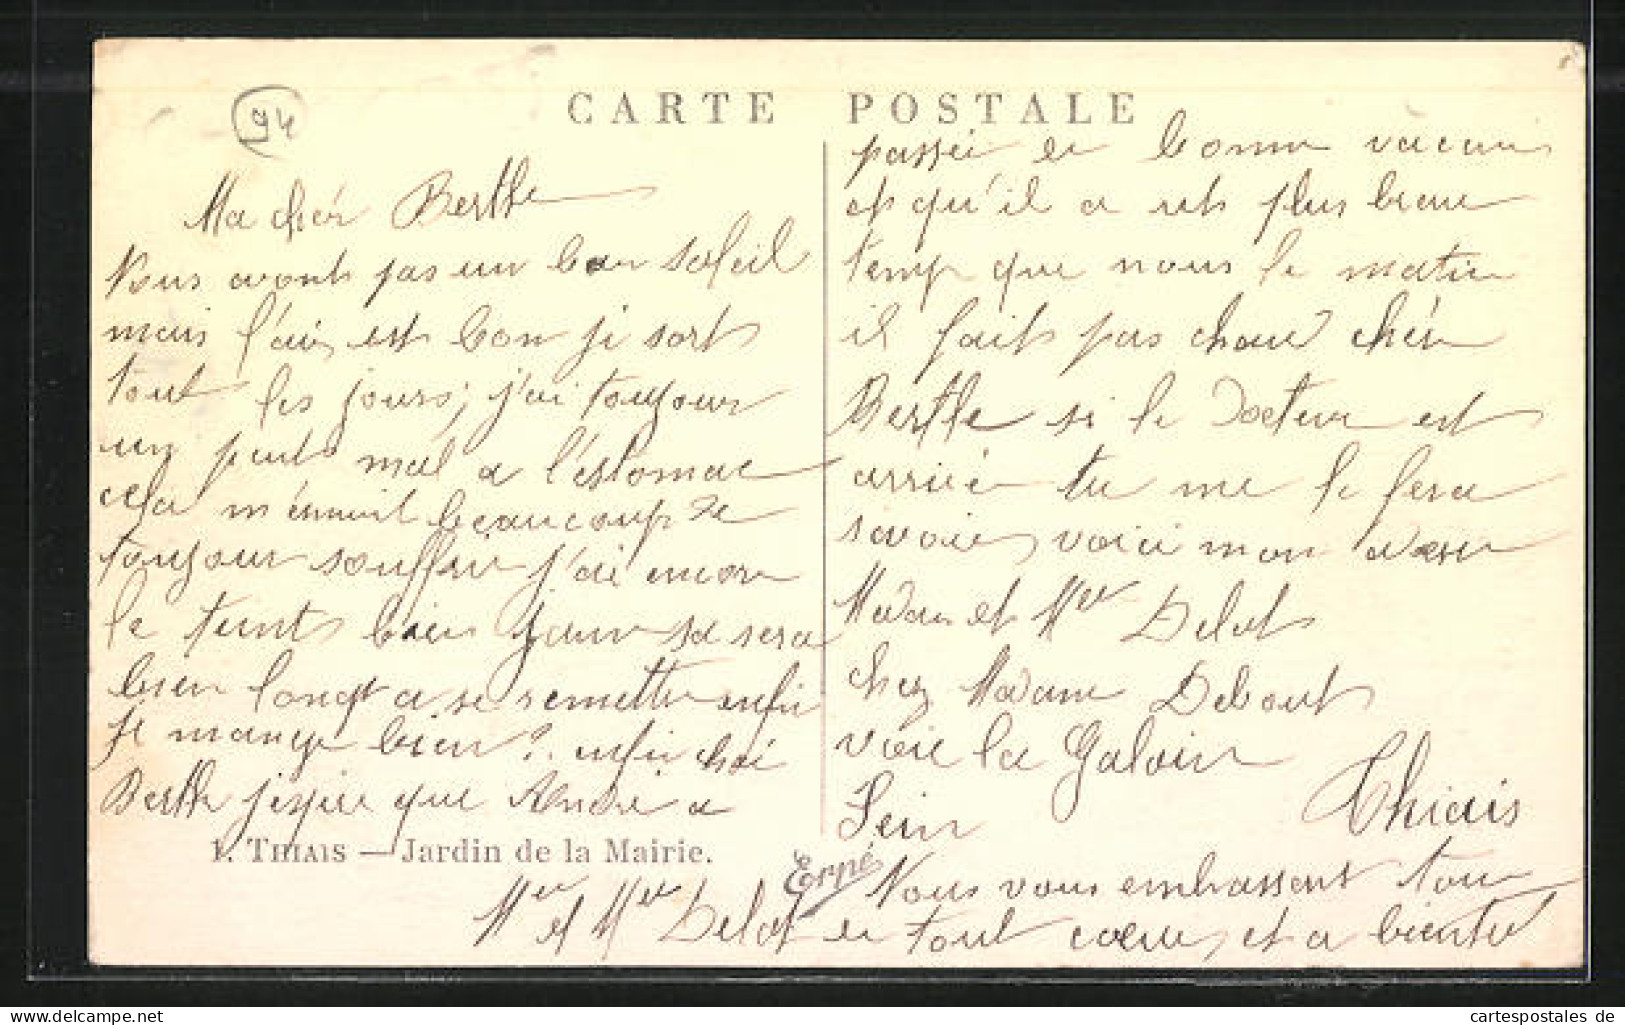 CARTE POSTALE
94
Ma cher Berthe
Nous avont pas un beau soleil
mais l'air est bon je sort
tout les jours, j'ai toujour
un petit mal a l'estomac
cela m'ennuit beaucoup de
toujour souffrir j'ai encore
le teint bien jaune sa sera
bien longt a se remettre enfin
je mange bien. enfin cher
Berthe j'espere que André a
passée de bonne vacance
et qu'il a ut plus beau
temp que nous le matin
il fait pas chaud cher
Berthe si le Docteur est
arrivé tu me le fera
savoir, voici mon adresse
Madame et Mr Delot
chez Madame Debout
voie la Galoin
Seine Thiais
1. THIAIS — Jardin de la Mairie.
Erpé
Nous vous embrassent tous
de tout coeur, et a bientot
Mr et Mer Delot
cartespostales de